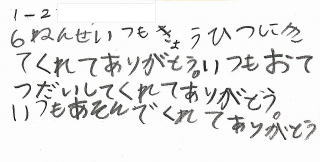 1-2
6ねんせいいつもきょうひつにき
てくれてありがとう。いつもおて
つだいしてくれてありがとう。
いつもあそんでくれてありがとう